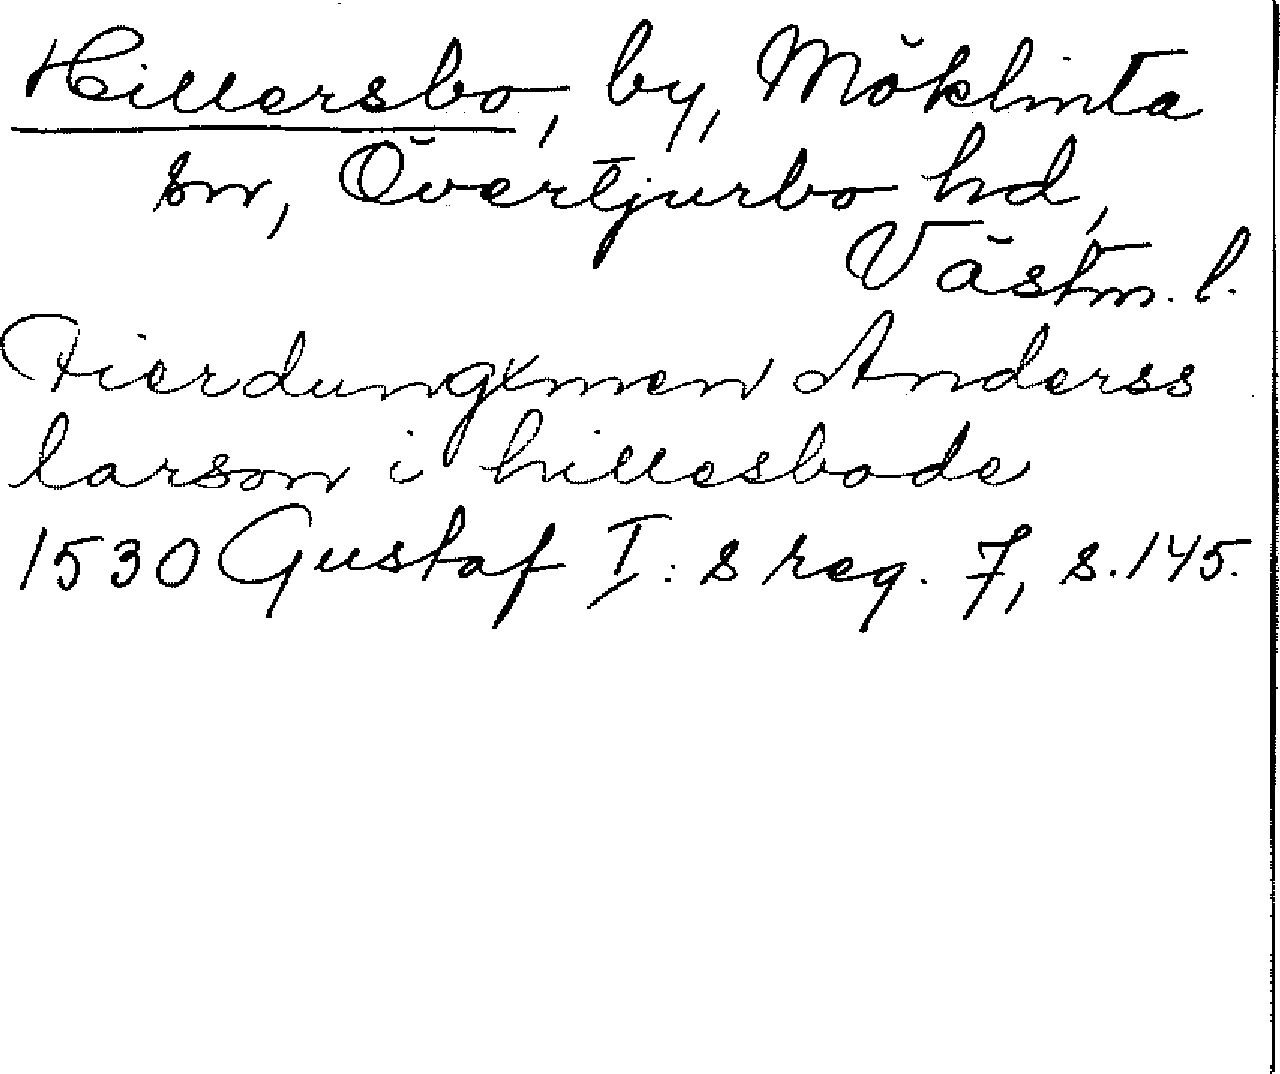 Hillersbo, by, Möklinta
sn, Övertjurbo hd,
Västm. l.
Fierdungxmen Anderss
larson i hillesbode
1530 Gustaf I:s reg. 7, s. 145.